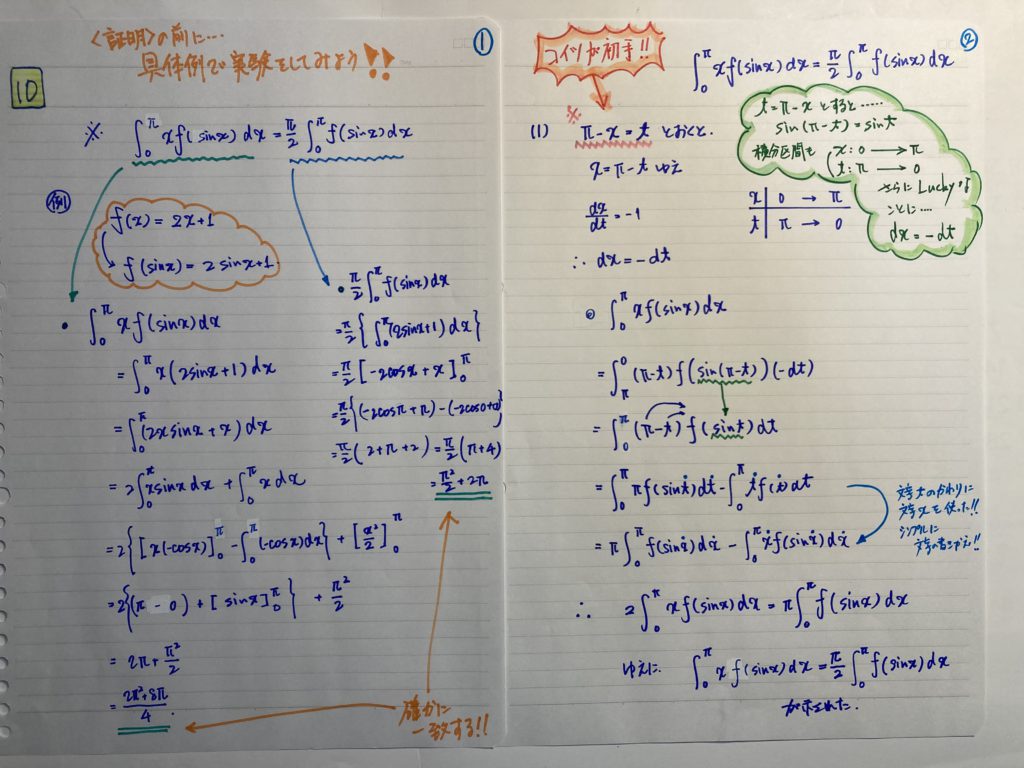 ①
<証明>の前に…
具体例で実験をしてみよう!!
10
※ ∫₀^π x f(sinx) dx = π/2 ∫₀^π f(sinx) dx
例
f(x) = 2x+1
f(sinx) = 2sinx+1.
• ∫₀^π x f(sinx) dx
= ∫₀^π x(2sinx+1) dx
= ∫₀^π (2xsinx + x) dx
= 2∫₀^π xsinx dx + ∫₀^π x dx
= 2{[x(-cosx)]₀^π - ∫₀^π (-cosx) dx} + [x²/2]₀^π
= 2{(π - 0) + [sinx]₀^π} + π²/2
= 2π + π²/2
= (2π²+8π)/4.
• π/2 ∫₀^π f(sinx) dx
= π/2 {∫₀^π (2sinx+1) dx}
= π/2 [-2cosx + x]₀^π
= π/2 {(-2cosπ + π) - (-2cos0+0)}
= π/2 (2+π+2) = π/2 (π+4)
= π²/2 + 2π
確かに
一致する!!
②
コイツが初手!!
∫₀^π x f(sinx) dx = π/2 ∫₀^π f(sinx) dx
t=π-x とすると……
sin(π-t) = sint
積分区間も
x: 0 → π
t: π → 0
さらに Lucky な
ことに…
dx = -dt
※
(1) π-x = t とおくと.
x = π-t ゆえ
dx/dt = -1
∴ dx = -dt
x | 0 → π
t | π → 0
◎ ∫₀^π x f(sinx) dx
= ∫_π^0 (π-t) f(sin(π-t)) (-dt)
= ∫₀^π (π-t) f(sint) dt
= ∫₀^π π f(sint) dt - ∫₀^π t f(t) dt
= π∫₀^π f(sinx) dx - ∫₀^π x f(sinx) dx
文字tのかわりに
文字xを使った!!
シンプルに
文字の書きかえ!!
∴ 2∫₀^π x f(sinx) dx = π∫₀^π f(sinx) dx
ゆえに ∫₀^π x f(sinx) dx = π/2 ∫₀^π f(sinx) dx
が示された.